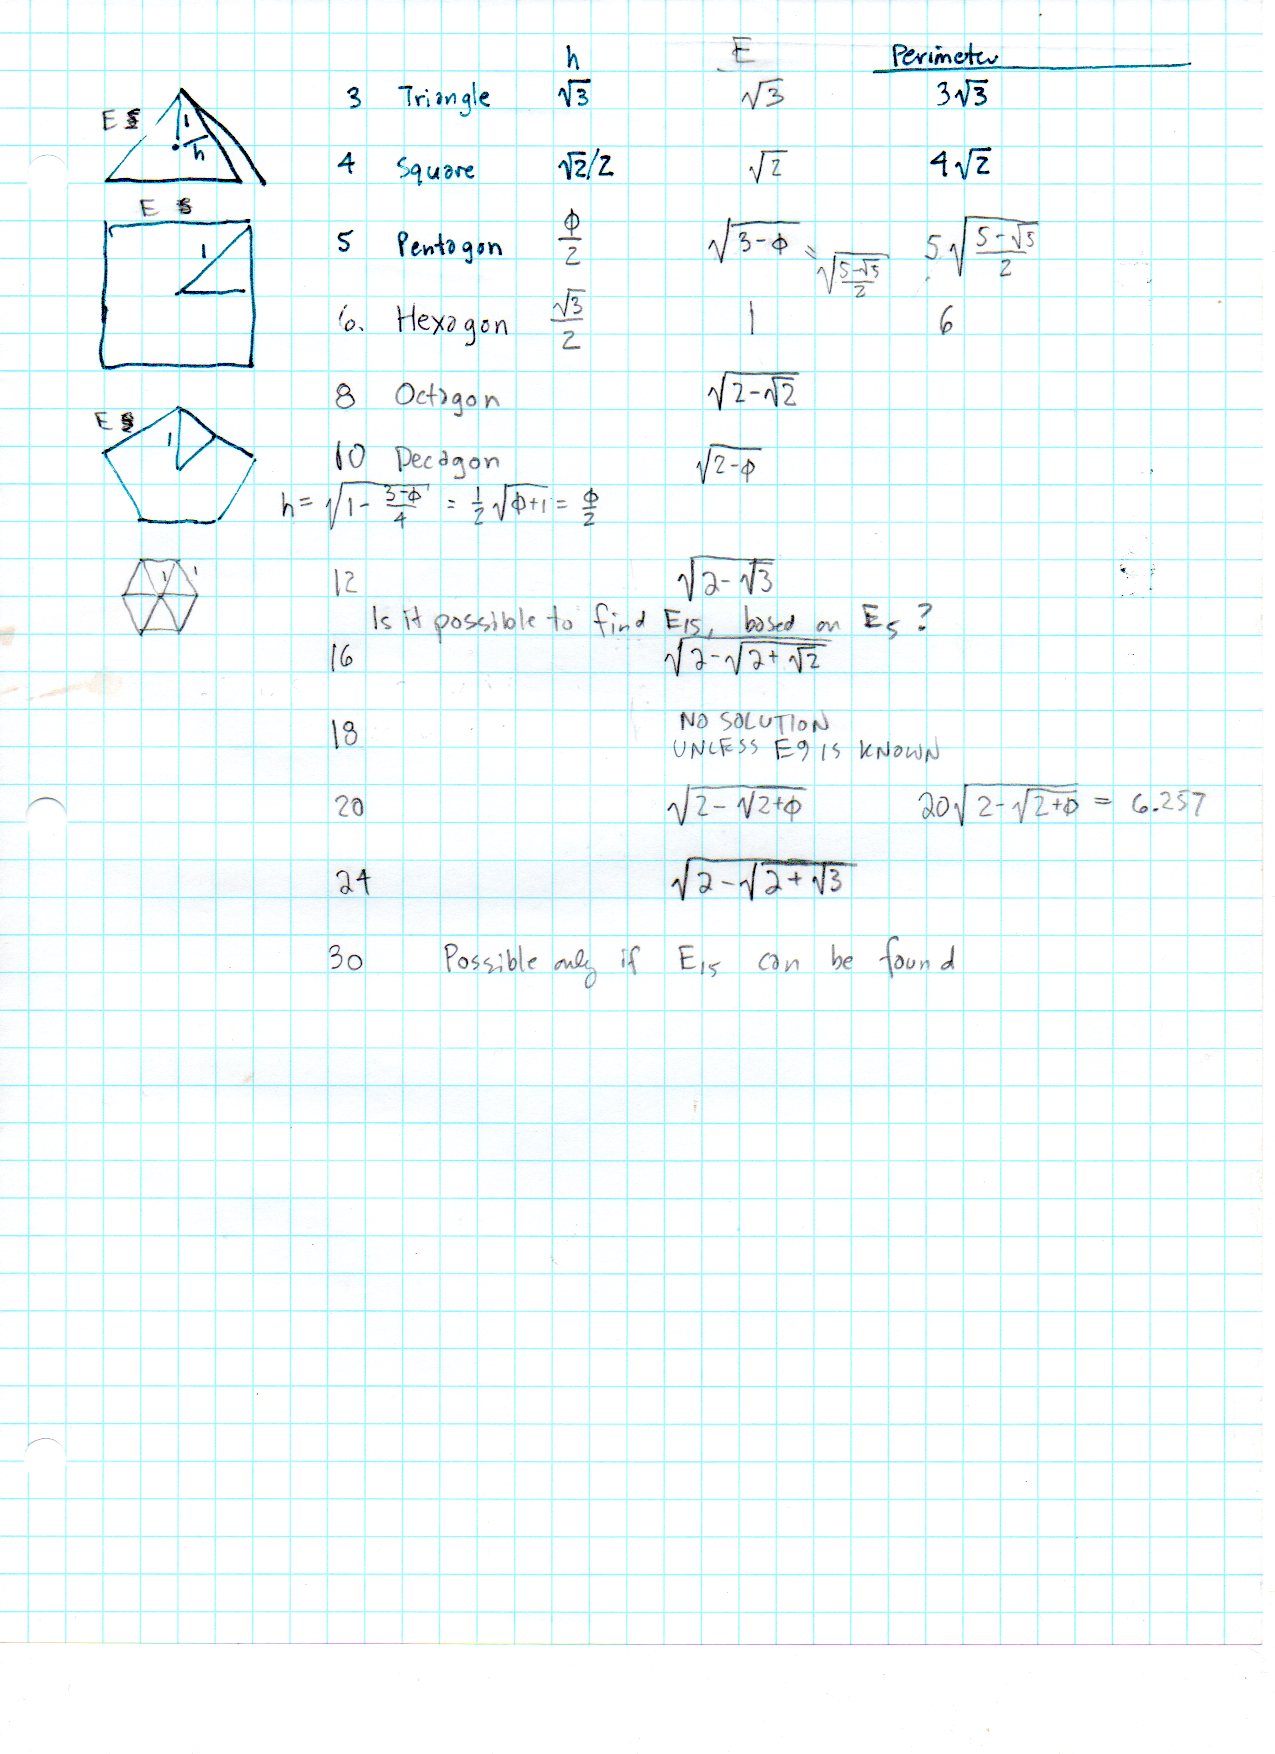 h E Perimeter
3 Triangle √3 √3 3√3
E 1 h
4 Square √2/2 √2 4√2
E
1
5 Pentagon ϕ/2 √(3-ϕ) = √((5-√5)/2) 5√((5-√5)/2)
6. Hexagon √3/2 1 6
8 Octagon √(2-√2)
E 1
10 Decagon √(2-ϕ)
h = √(1 - (3-ϕ)/4) = 1/2 √(ϕ+1) = ϕ/2
1 1
12 √(2-√3)
Is it possible to find E15, based on E5?
16 √(2-√(2+√2))
18 NO SOLUTION
UNLESS E9 IS KNOWN
20 √(2-√(2+ϕ)) 20√(2-√(2+ϕ)) = 6.257
24 √(2-√(2+√3))
30 Possible only if E15 can be found